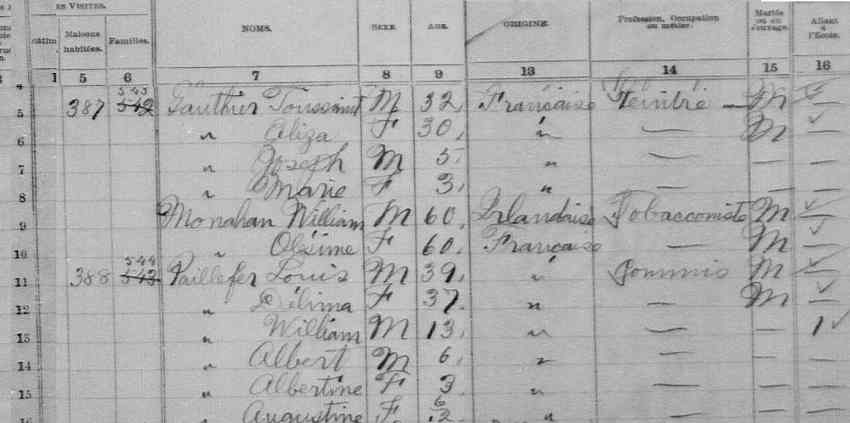 ES VISITES.
Maisons habitées. Familles. NOMS. SEXE. AGE. ORIGINE. Profession, Occupation ou métier. Mariés ou en veuvage. Allant à l'École.
1 5 6 7 8 9 13 14 15 16
4
5 387 543 542 Gauthier Toussaint M 32 Française Peintre — M —
6 " Aliza F 30 " — M
7 " Joseph M 5 " — — —
8 " Marie F 3 " — — —
9 Monahan William M 60 Irlandaise Tobacconiste M —
10 " Olésime F 60 Française — M
11 388 544 543 Paillefer Louis M 39 " Commis M —
12 " Délima F 37 " — M —
13 " William M 13 " — — 1
14 " Albert M 6 " — — —
15 " Albertine F 3 " — — —
16 " Augustine F 6/12 " — — —